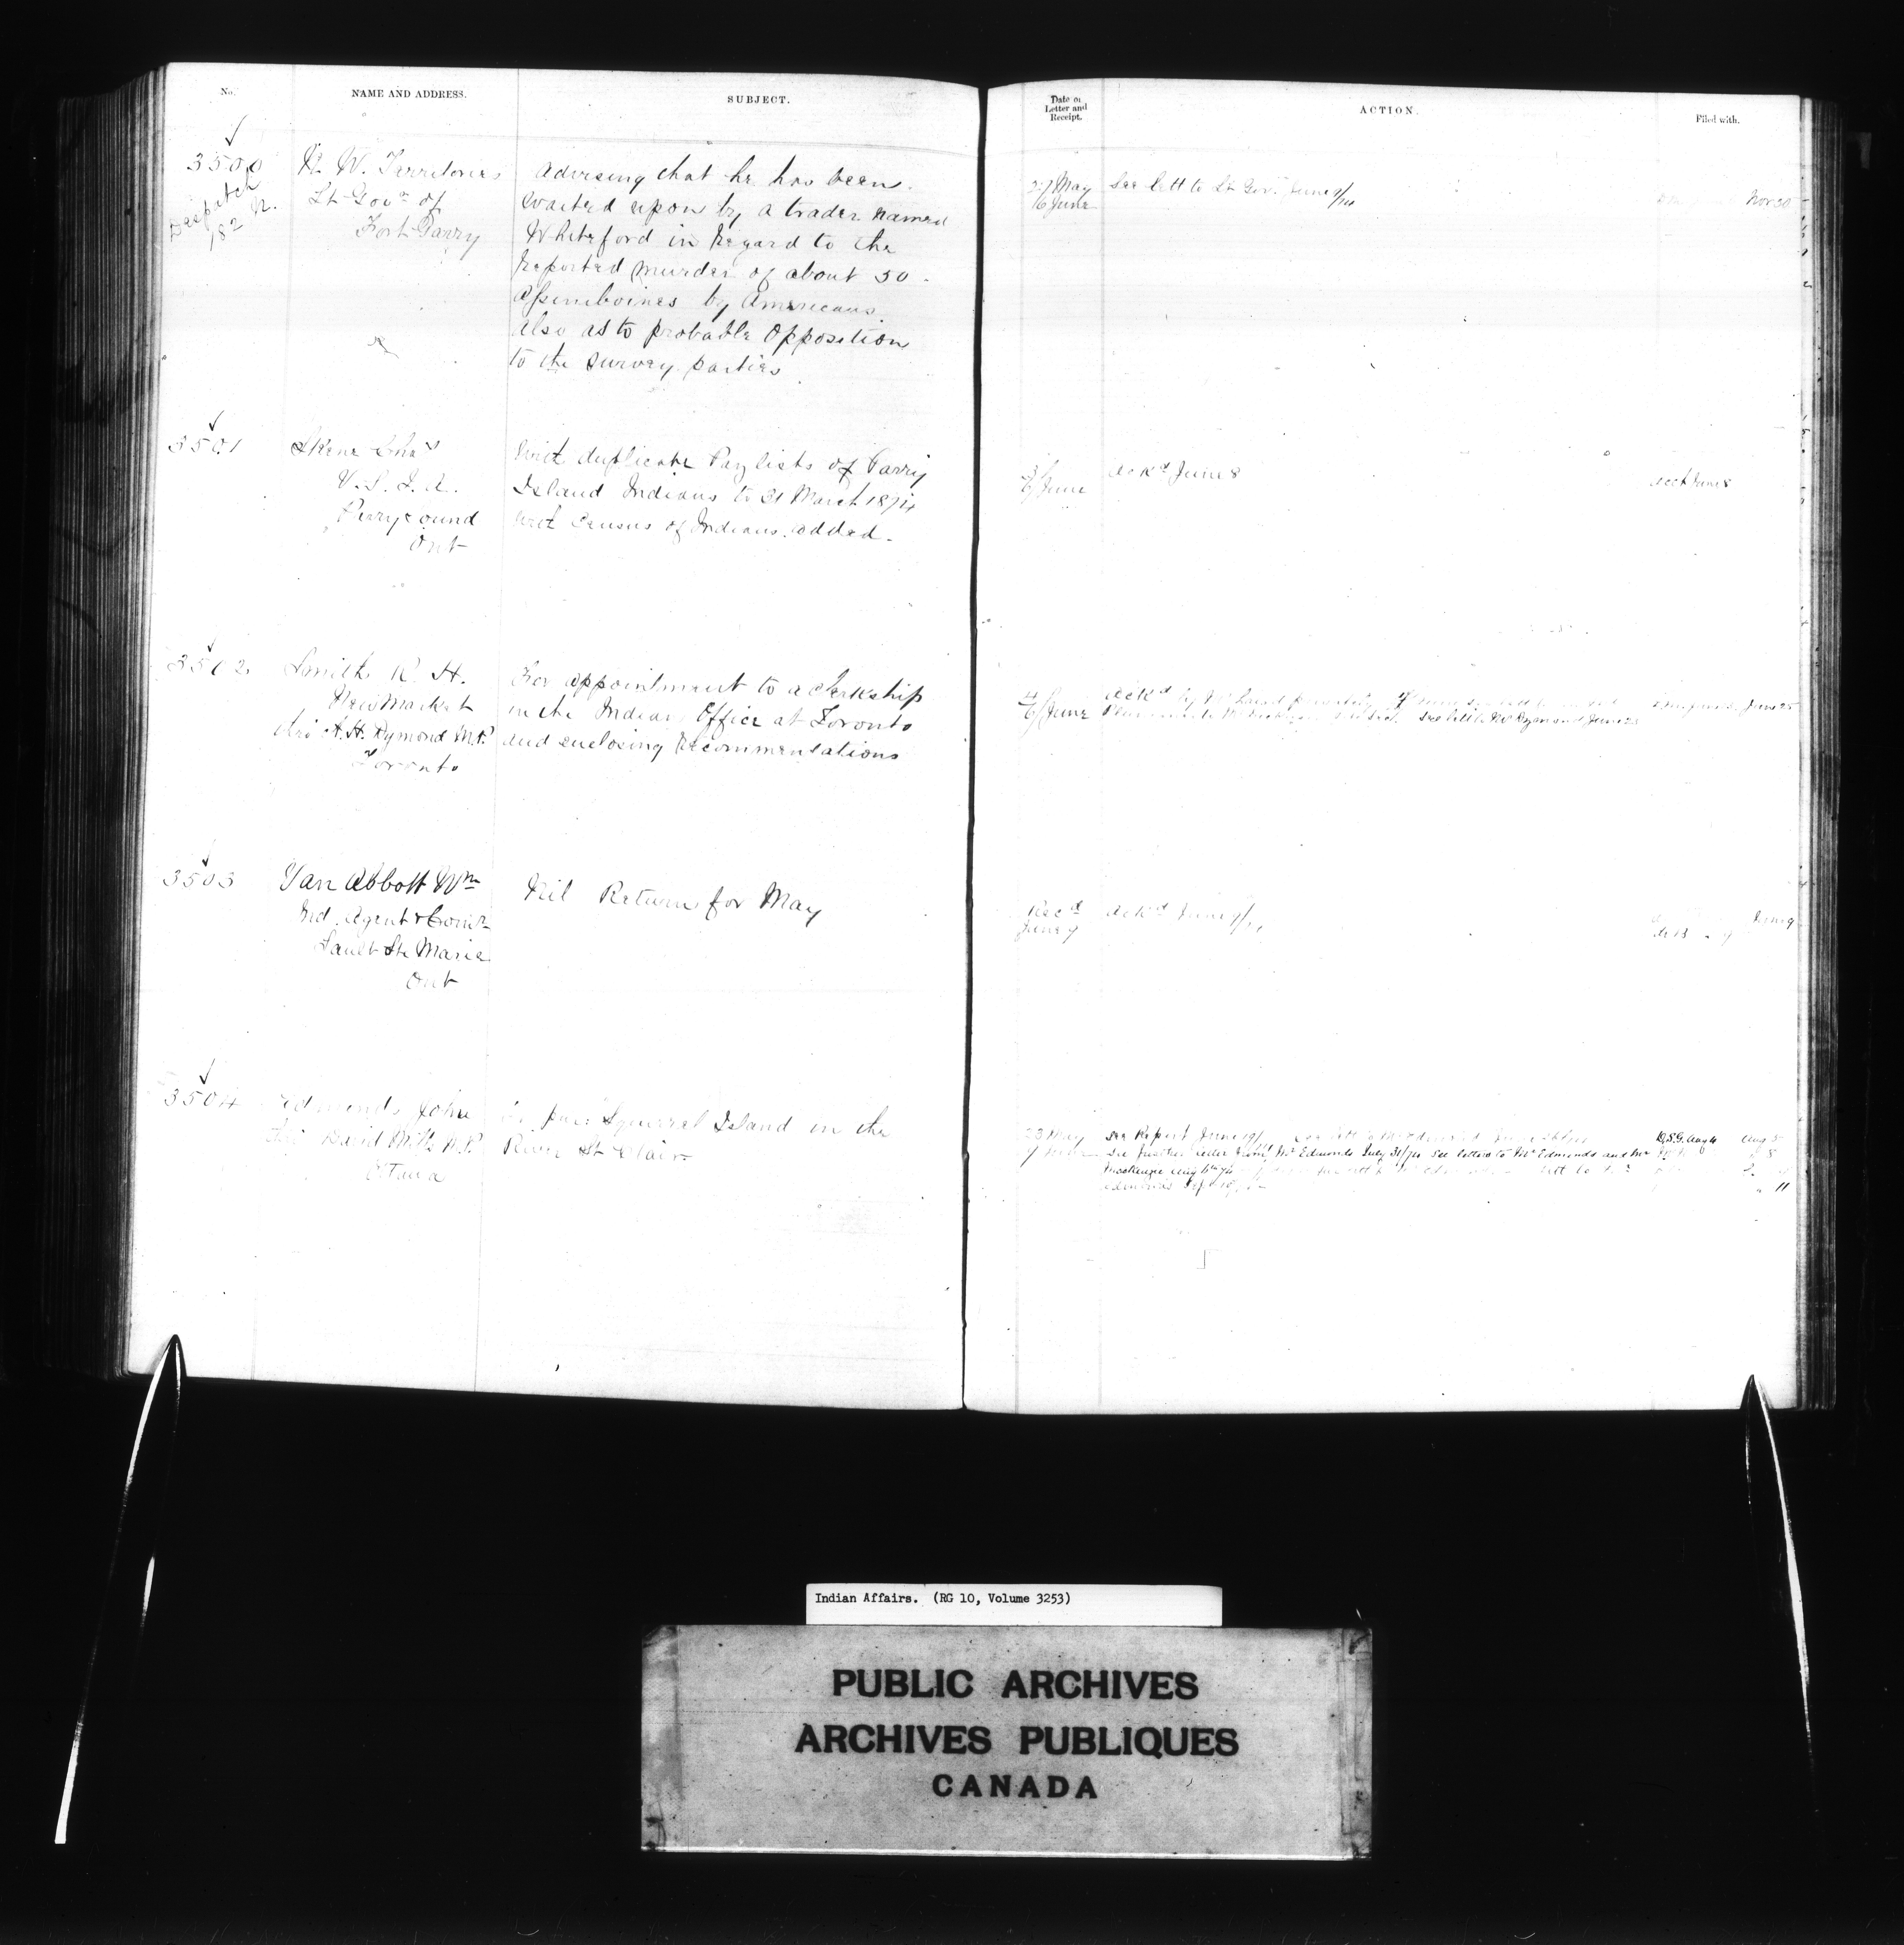 No.
NAME AND ADDRESS.
SUBJECT.
Date of
Letter and
Receipt.
ACTION.
Filed with.
3500
Despatch
182 N.
N. W. Territories
Lt Govr of
Fort Garry
Advising that he has been
waited upon by a trader named
Whiteford in regard to the
reported murder of about 50
Assiniboines by Americans.
Also as to probable opposition
to the survey parties
27 May
6 June
See lett to Lt Govr June 9/74
Nov 30
3501
Skene Chas
V. S. I. A.
Parry Sound
Ont
duplicate Paylists of Parry
Island Indians to 31 March 1874
Census of Indians added.
3/6 June
Ackd June 8
June 8
3502
Smith R. H.
New Market
thro A. H. Dymond M.P.
Toronto
For appointment to a clerkship
in the Indian Office at Toronto
and enclosing recommendations
4/6 June
Ackd by
See lett to Mr Dymond June 25
June 25
3503
Van Abbott Wm
Ind. Agent & Comr
Sault Ste Marie
Ont
Nil Return for May
Recd
June 9
Ackd June 9/74
June 9
3504
Edmonds John
thro David Mills M.P.
Ottawa
Squirrel Island in the
River St Clair
23 May
See Report June 19/
See further letter from Mr Edmonds July 31/74 See letters to Mr Edmonds and Mr
MacKenzie Aug 6th 74
Edmonds Sept
Aug 4
Aug 5
" 8
" 11
Indian Affairs. (RG 10, Volume 3253)
PUBLIC ARCHIVES
ARCHIVES PUBLIQUES
CANADA